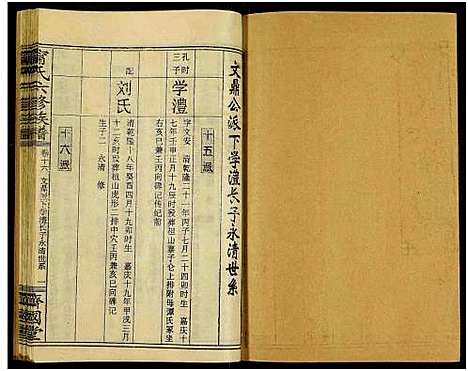 文鼎公派下学澧长子永清世系
十五派
孔时
三子
学澧
字文安 清乾隆二十一年丙子七月二十四卯时生 嘉庆十
七年壬申正月十九辰时殁葬祖山寨子仑上排附母潭氏冢坐
右亥巳兼壬丙向碑记传纪前
配
刘氏
清乾隆十八年癸酉四月十九卯时生 嘉庆十九年甲戌三月
十二亥时殁葬祖山虎形正中坐壬丙兼亥巳向碑记
生子二 永清 修
十六派
氏六修族谱
卷十六 文鼎派下学澧长子永清世系 一
齊國堂